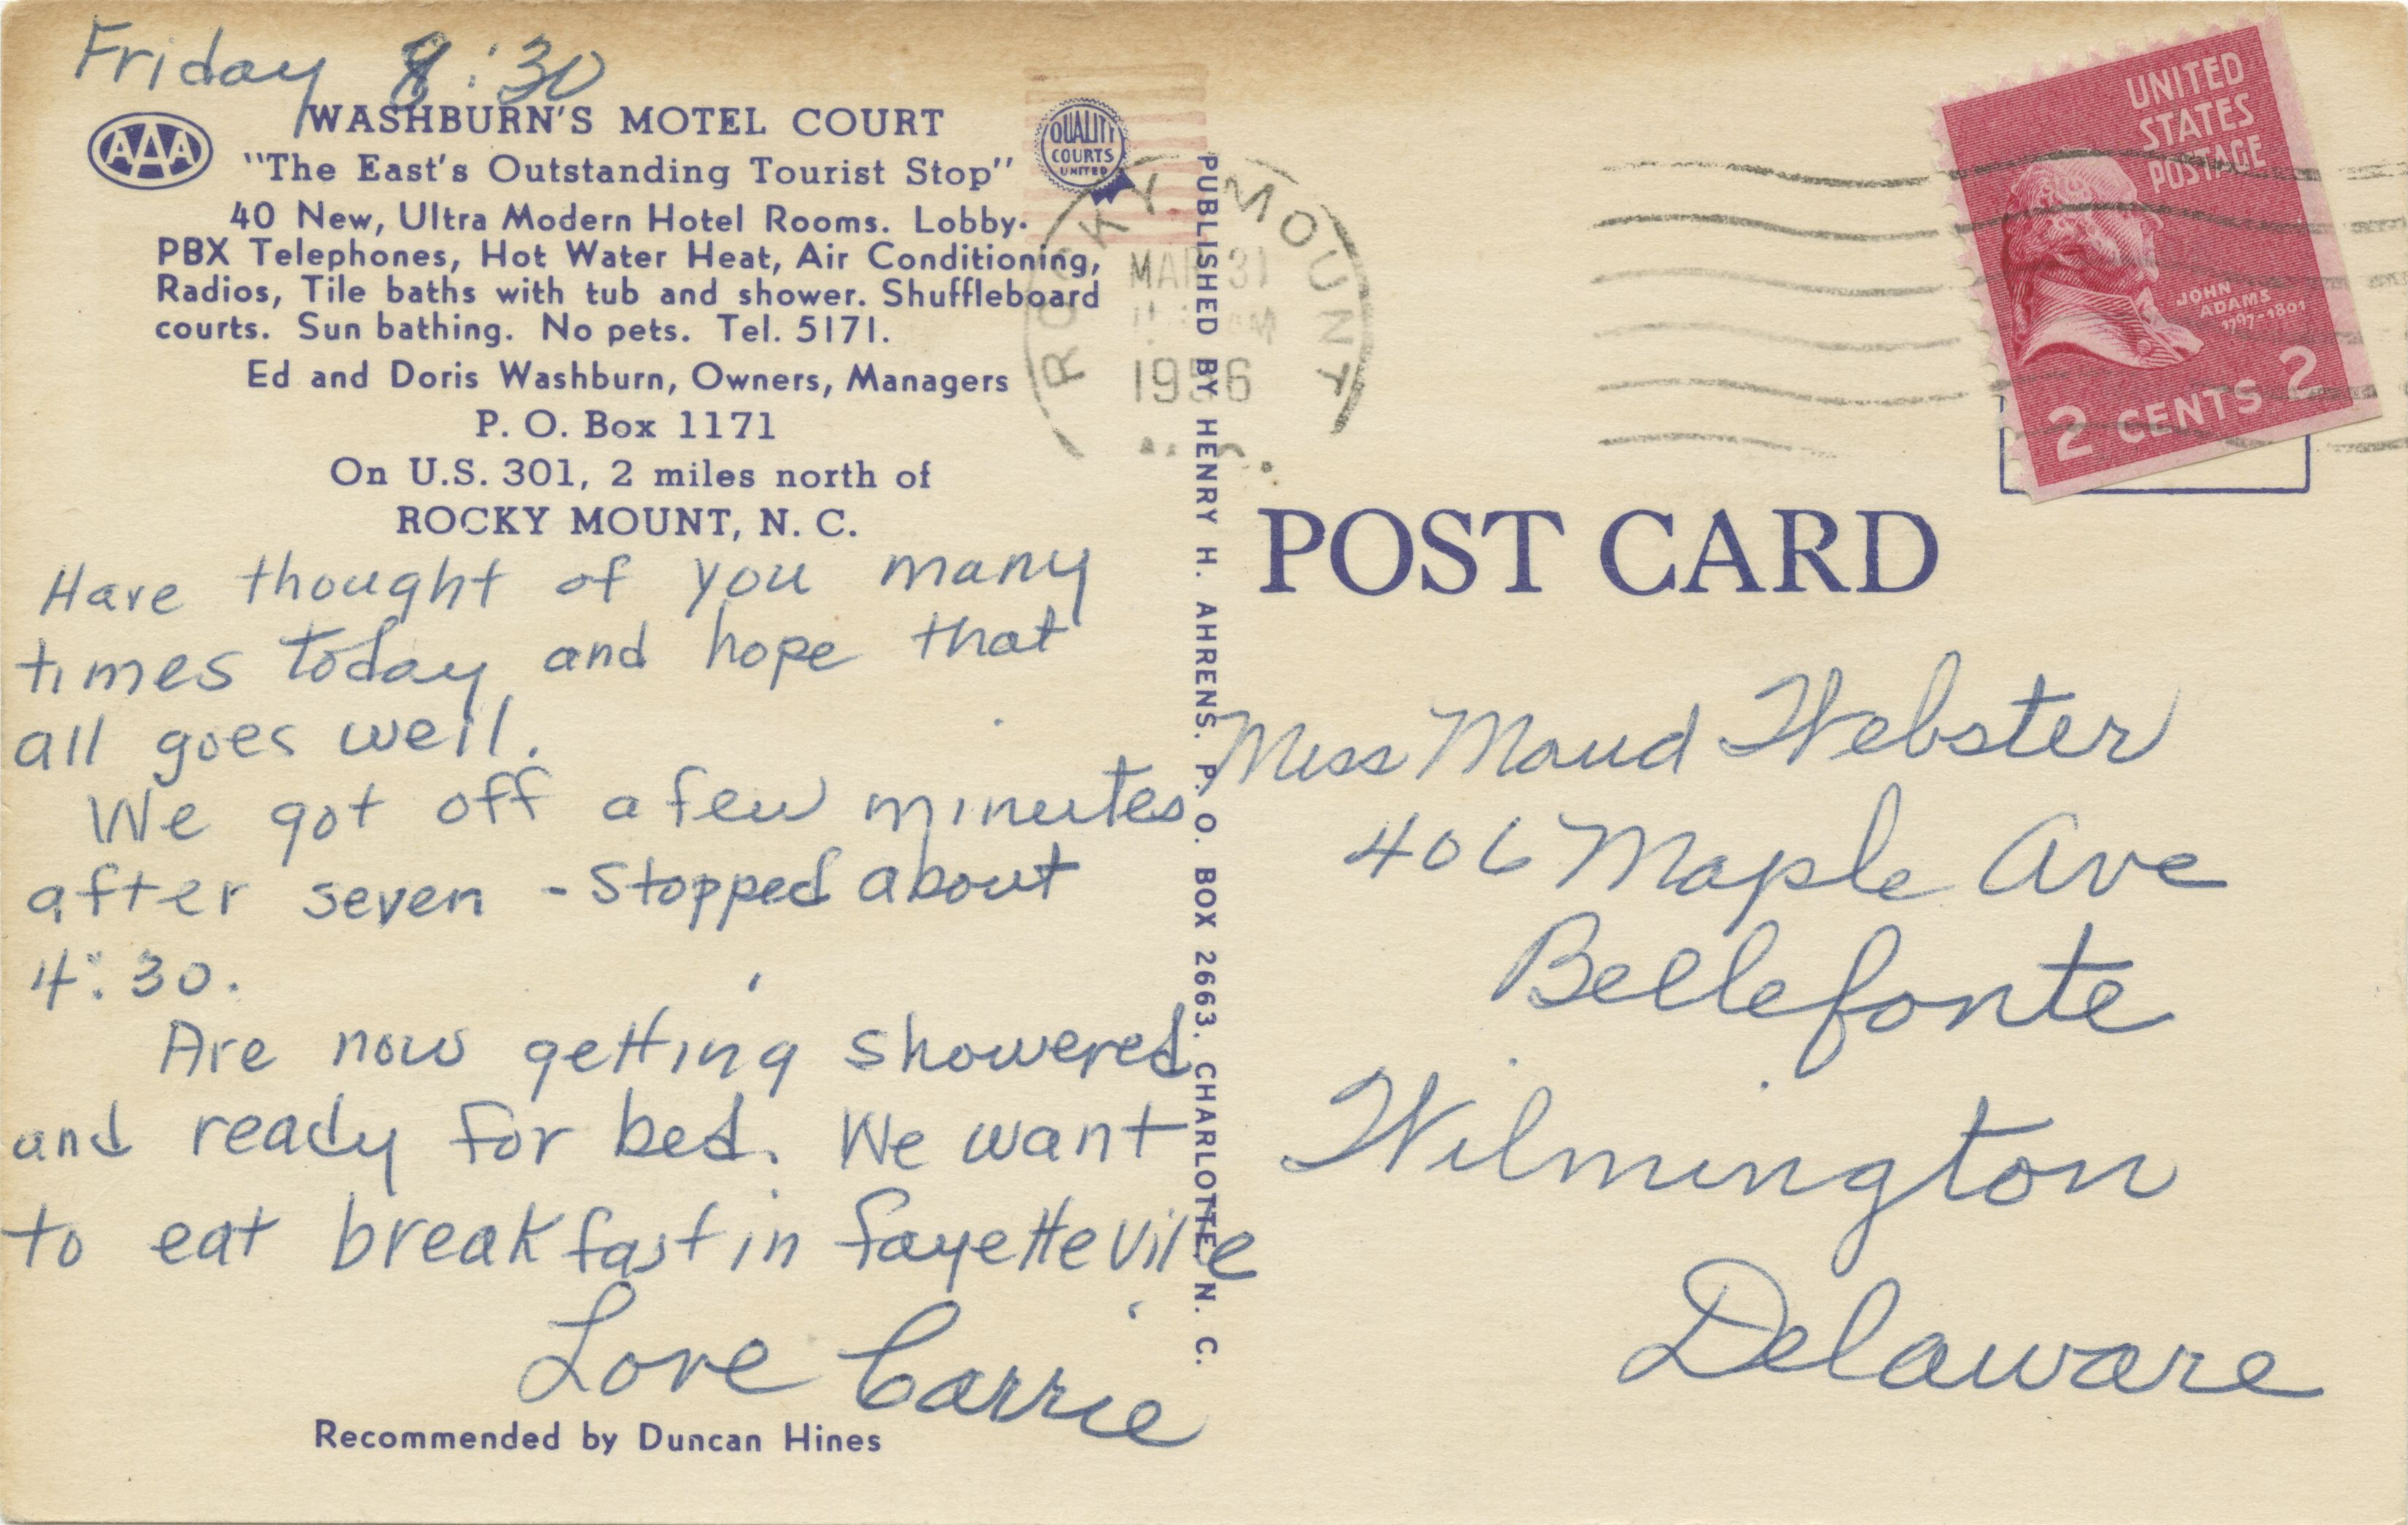 Friday 8:30
AAA
WASHBURN'S MOTEL COURT
"The East's Outstanding Tourist Stop"
QUALITY
COURTS
UNITED
40 New, Ultra Modern Hotel Rooms. Lobby.
PBX Telephones, Hot Water Heat, Air Conditioning,
Radios, Tile baths with tub and shower. Shuffleboard
courts. Sun bathing. No pets. Tel. 5171.
Ed and Doris Washburn, Owners, Managers
P. O. Box 1171
On U.S. 301, 2 miles north of
ROCKY MOUNT, N. C.
Have thought of you many
times today and hope that
all goes well.
We got off a few minutes
after seven - stopped about
4:30.
Are now getting showered
and ready for bed. We want
to eat breakfast in Fayetteville
Love Carrie
Recommended by Duncan Hines
PUBLISHED BY HENRY H. AHRENS. P. O. BOX 2663. CHARLOTTE, N. C.
ROCKY MOUNT
MAR 31
AM
1956
UNITED
STATES
POSTAGE
JOHN
ADAMS
1797-1801
2 CENTS 2
POST CARD
Miss Maud Webster
406 Maple Ave
Bellefonte
Wilmington
Delaware